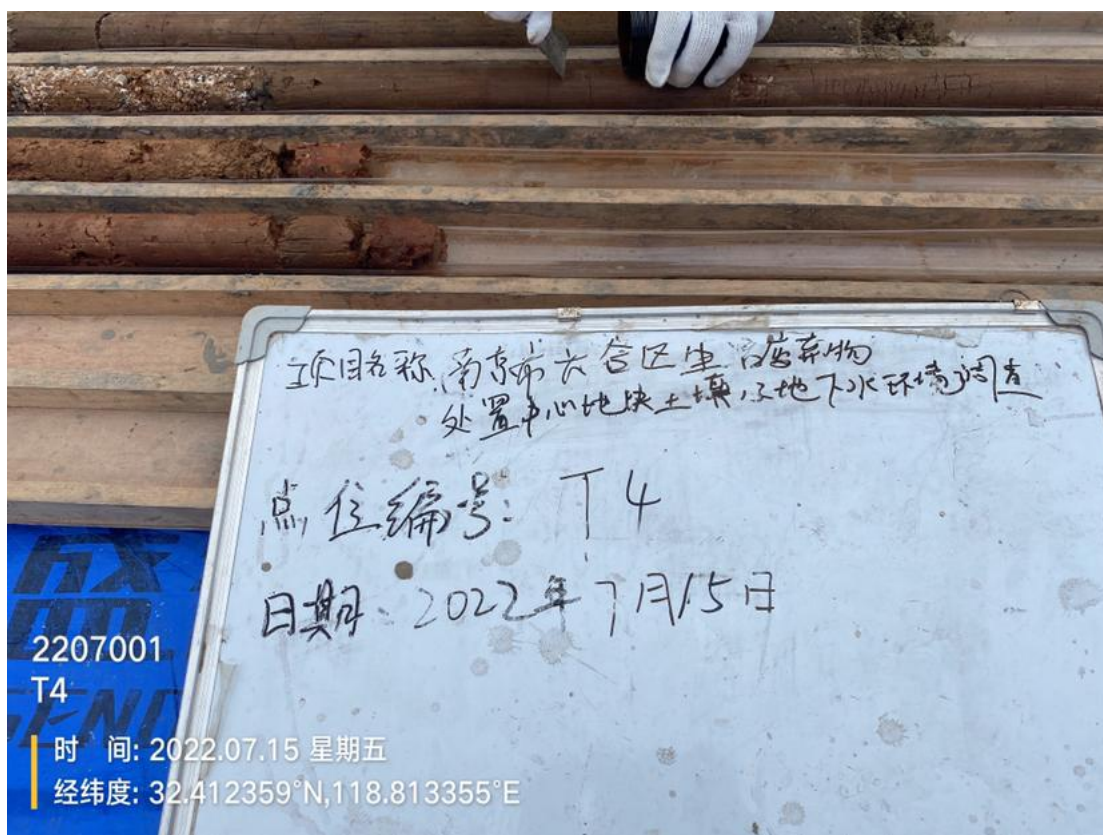 项目名称 南京市六合区生活废弃物
处置中心地块土壤及地下水环境调查
点位编号: T4
日期: 2022年7月15日
2207001
T4
时 间: 2022.07.15 星期五
经纬度: 32.412359°N,118.813355°E